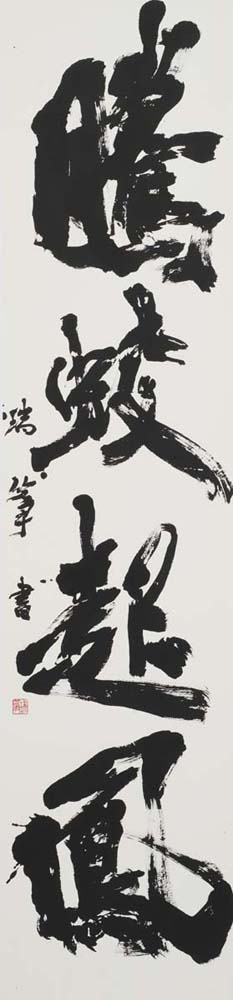 騰蛟起鳳
瑞筆書